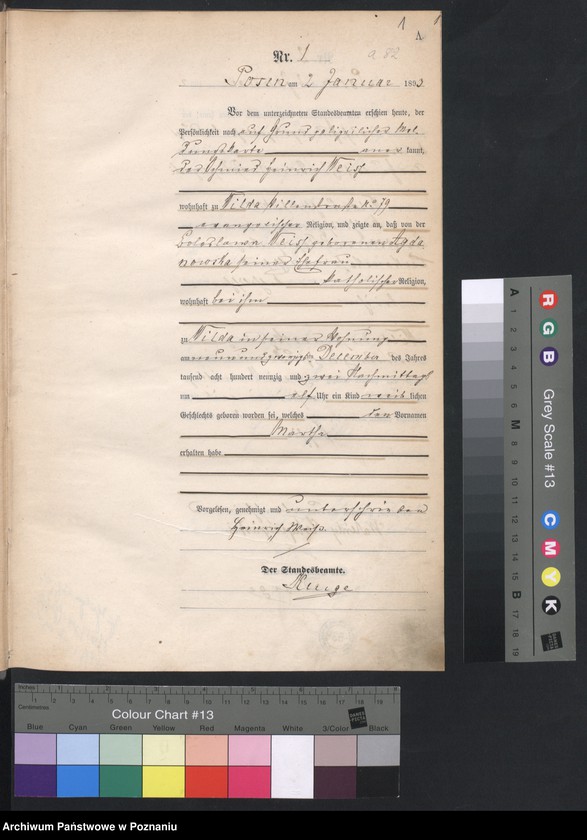 1
1
Nr. 1
a 82
Posen am 2 Januar 1893
Vor dem unterzeichneten Standesbeamten erschien heute, der
Persönlichkeit nach auf Grund polizeilicher Mel-
kannt,
der Schmied Heinrich Weiß
wohnhaft zu Wilda No 79
evangelischer Religion, und zeigte an, daß von der
Boleslawa Weiß geborenen Agda
nowska seiner Ehefrau
katholischer Religion,
wohnhaft bei ihm
zu Wilda in seiner Wohnung
am neunundzwanzigsten December des Jahres
tausend acht hundert neunzig und zwei Nachmittags
um elf Uhr ein Kind weib lichen
Geschlechts geboren worden sei, welches den Vornamen
Martha
erhalten habe
Vorgelesen, genehmigt und unterschrieben
Heinrich Weiß.
Der Standesbeamte.
Inches
Centimetres
Colour Chart #13
Blue Cyan Green Yellow Red Magenta White 3/Color Black
R G B
Grey Scale #13
C M Y K
A 1 2 3 4 5 6 M 8 9 10 11 12 13 14 15 B 17 18 19
Archiwum Państwowe w Poznaniu